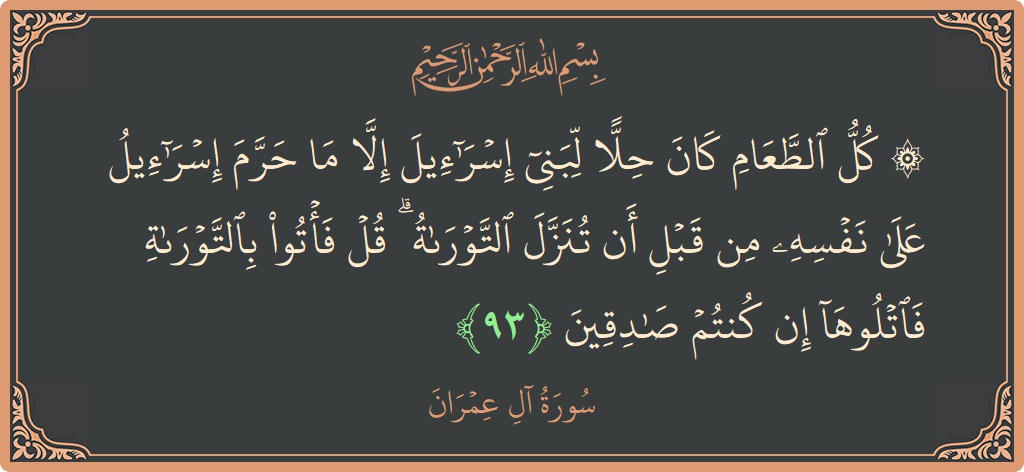 بِسْمِ اللَّهِ الرَّحْمَٰنِ الرَّحِيمِ
۞ كُلُّ ٱلطَّعَامِ كَانَ حِلًّا لِّبَنِىٓ إِسْرَٰٓءِيلَ إِلَّا مَا حَرَّمَ إِسْرَٰٓءِيلُ
عَلَىٰ نَفْسِهِۦ مِن قَبْلِ أَن تُنَزَّلَ ٱلتَّوْرَىٰةُ ۗ قُلْ فَأْتُوا۟ بِٱلتَّوْرَىٰةِ
فَٱتْلُوهَآ إِن كُنتُمْ صَـٰدِقِينَ ﴿٩٣﴾
سُورَةُ آلِ عِمْرَانَ